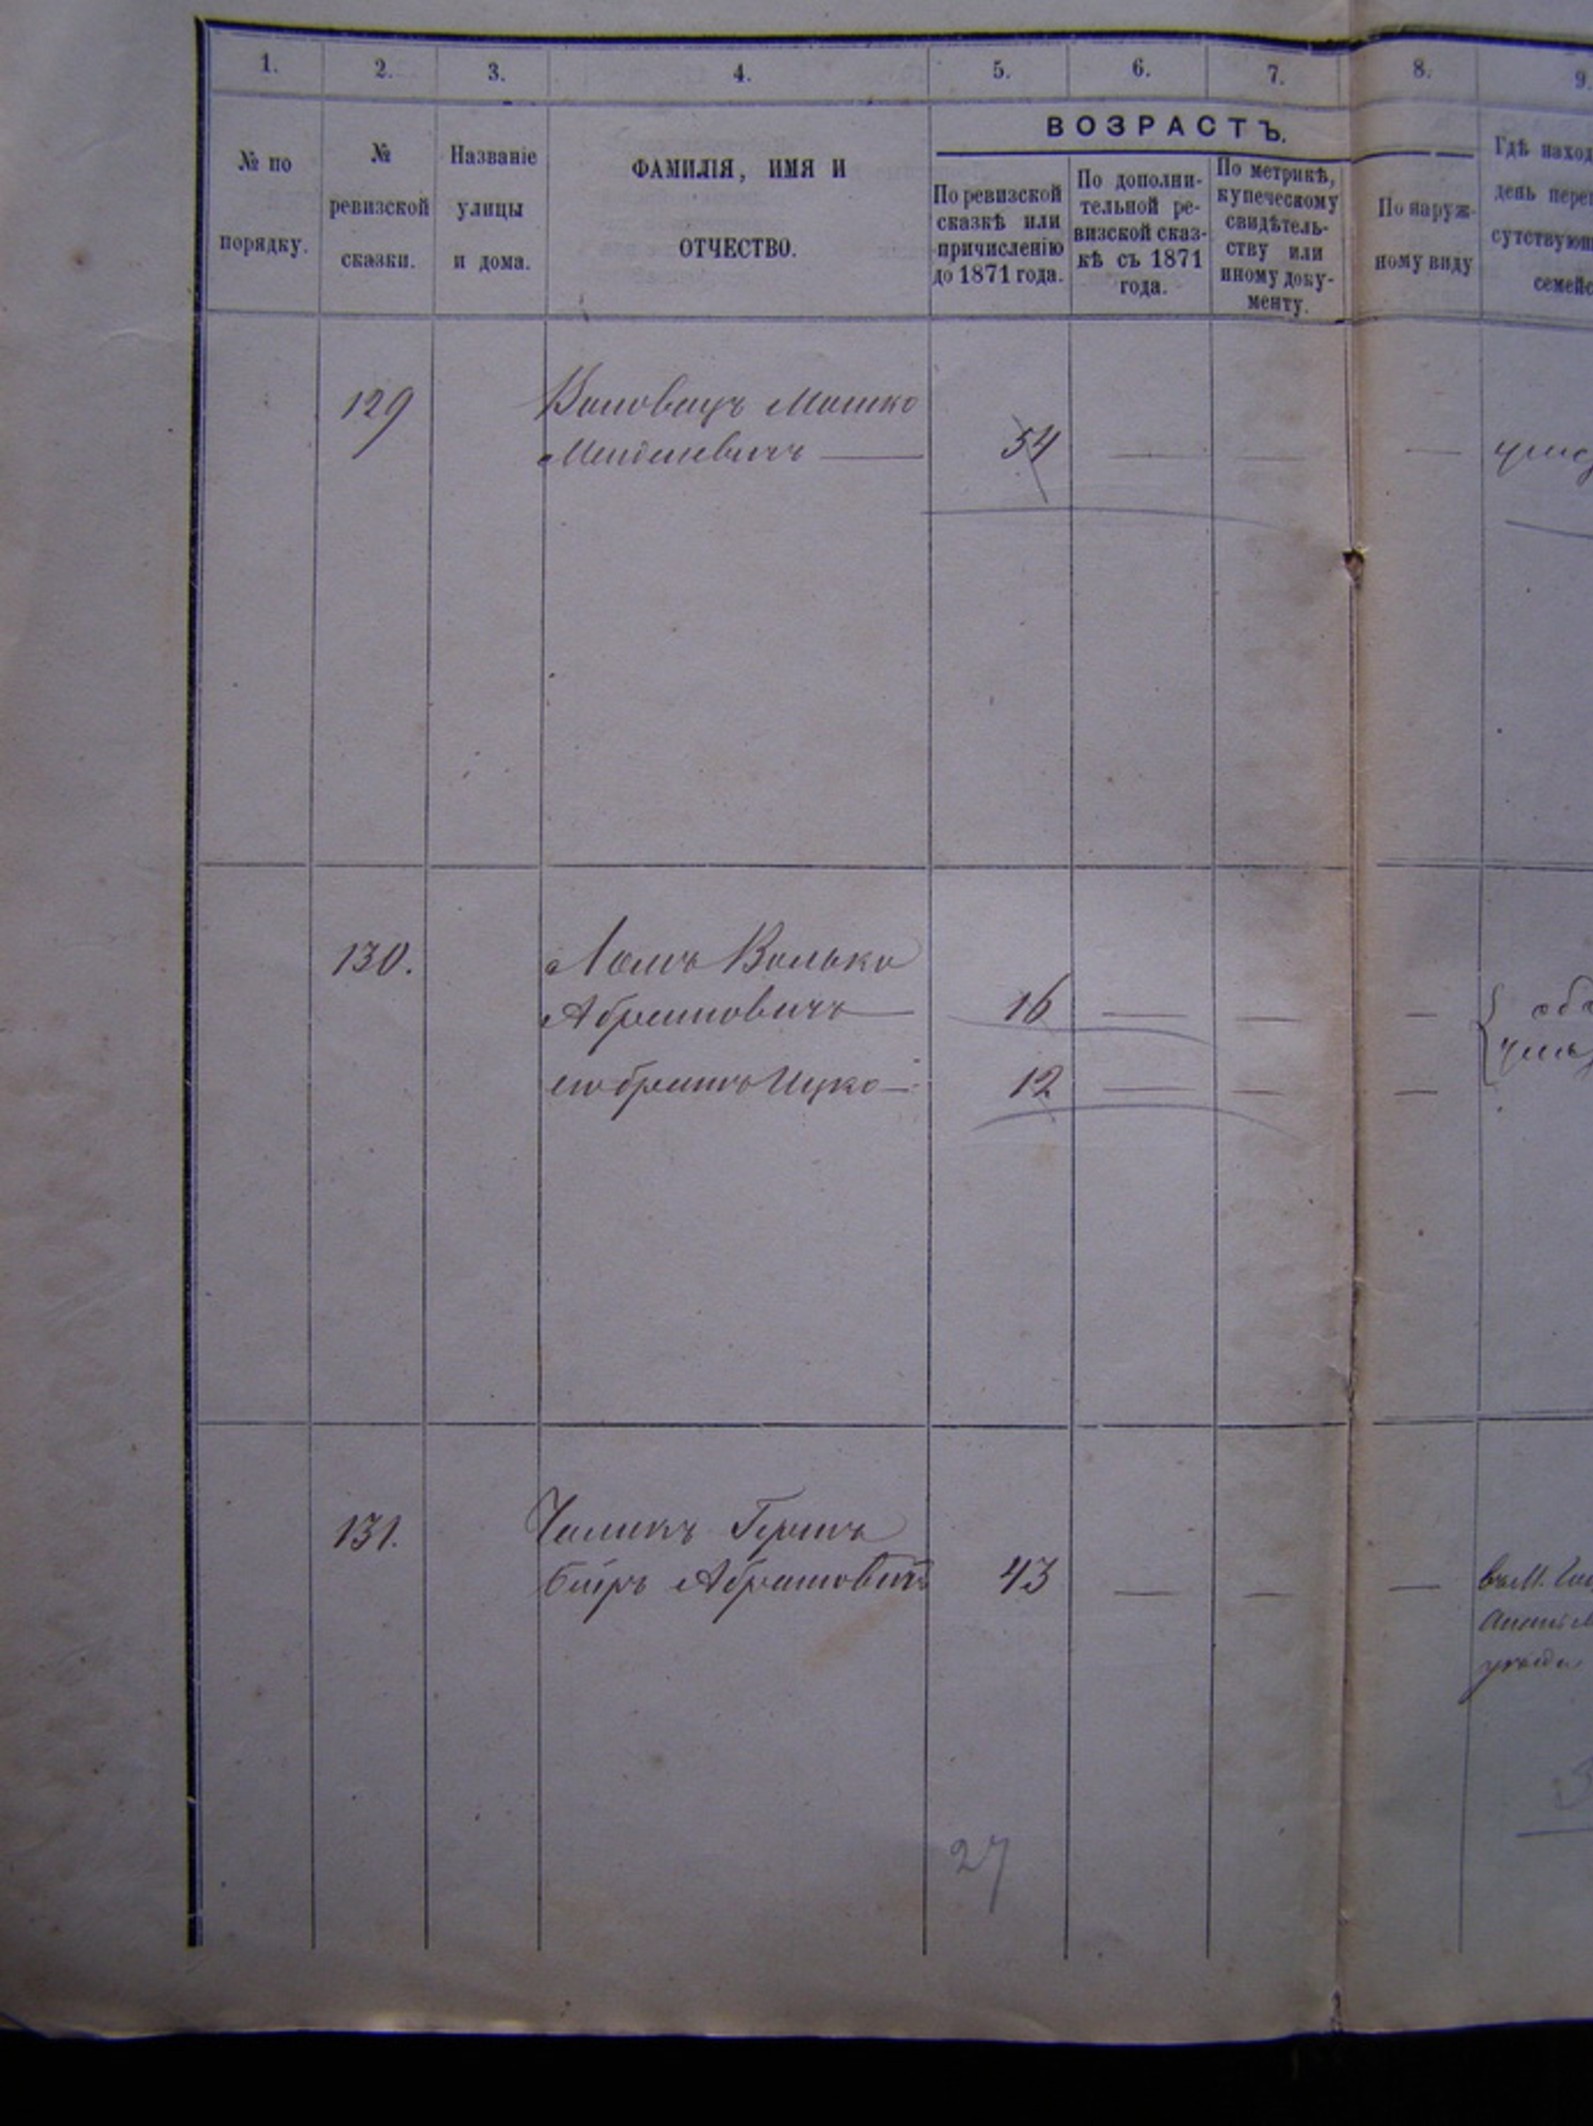 1. 2. 3. 4. 5. 6. 7. 8. 9.
№ по
порядку.
№
ревизской
сказки.
Названіе
улицы
и дома.
ФАМИЛІЯ, ИМЯ И
ОТЧЕСТВО.
ВОЗРАСТЪ.
По ревизской
сказкѣ или
причисленію
до 1871 года.
По дополни-
тельной ре-
визской сказ-
кѣ съ 1871
года.
По метрикѣ,
купеческому
свидѣтель-
ству или
иному доку-
менту.
По наруж-
ному виду
Гдѣ наход
день переп
сутствующ
семейс
129 Мошко
Менделевичъ — 54 — — —
130. Волько
Абрамовичъ — 16 — — —
его братъ Ицко — 12 — — —
131. Гершъ
Беръ Абрамовичъ 43 — — —
въ М.
уѣзда
27